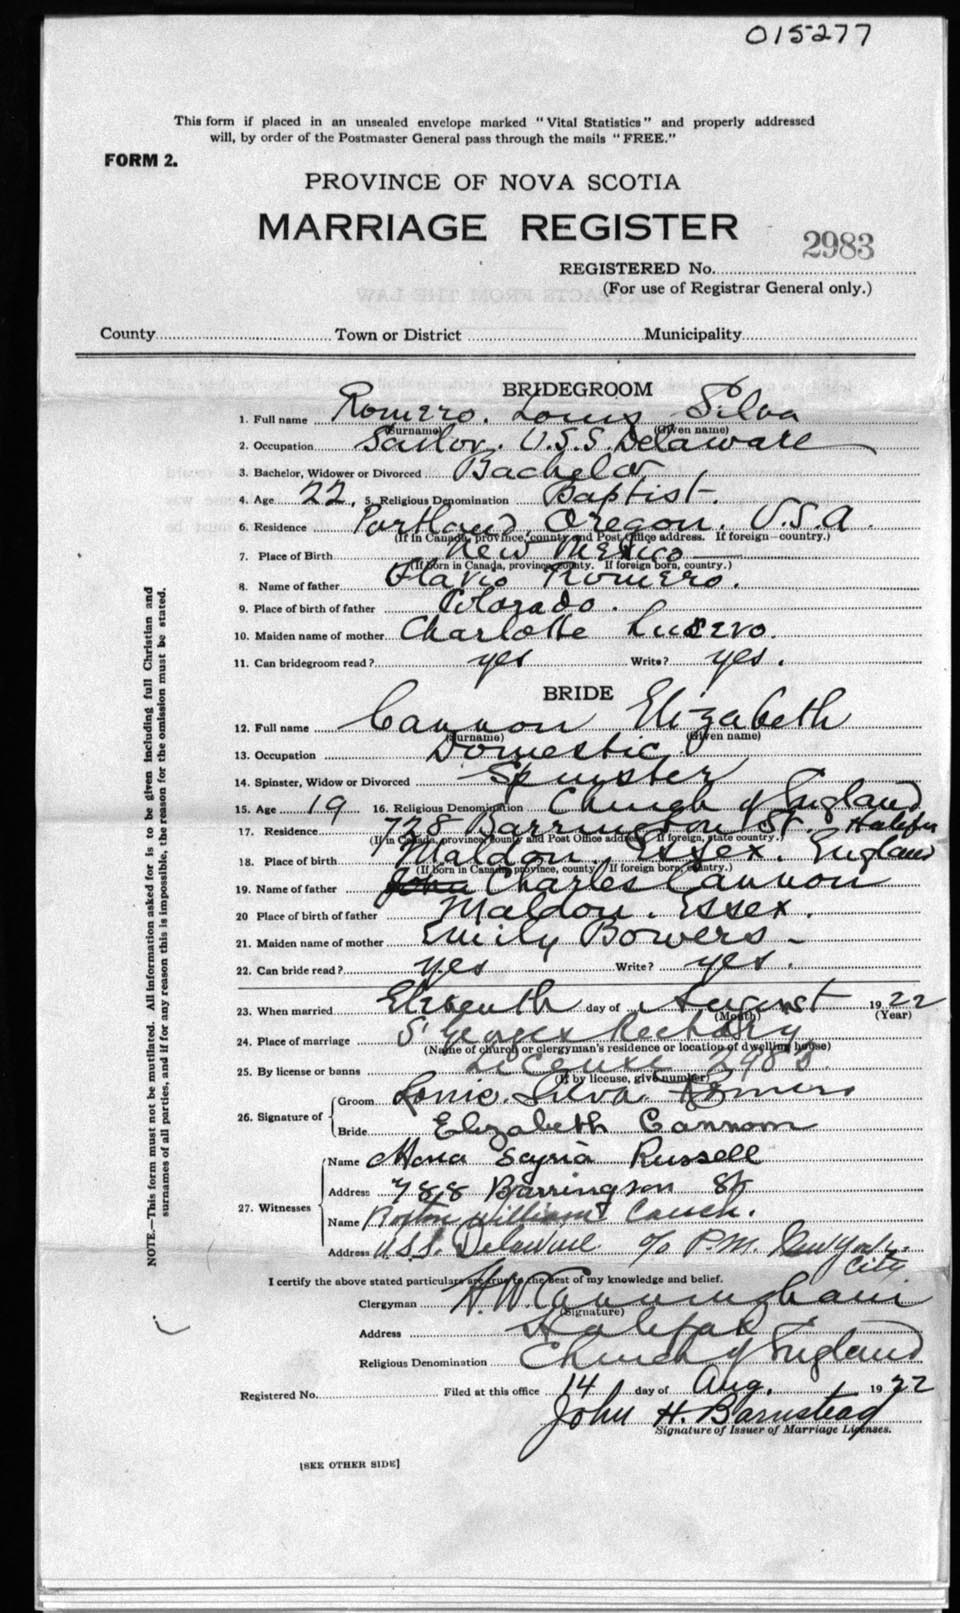 015277
This form if placed in an unsealed envelope marked "Vital Statistics" and properly addressed
will, by order of the Postmaster General pass through the mails "FREE."
FORM 2.
PROVINCE OF NOVA SCOTIA
MARRIAGE REGISTER
2983
REGISTERED No.
(For use of Registrar General only.)
County Town or District Municipality
BRIDEGROOM
1. Full name Romero. Louis Silva
(Surname) (Given name)
2. Occupation Sailor. U.S.S. Delaware
3. Bachelor, Widower or Divorced Bachelor
4. Age 22. 5. Religious Denomination Baptist.
6. Residence Portland, Oregon. U.S.A.
(If in Canada, province, county and Post Office address. If foreign—country.)
7. Place of Birth New Mexico
(If born in Canada, province, county. If foreign born, country.)
8. Name of father Flavio Romero.
9. Place of birth of father Colorado.
10. Maiden name of mother Charlotte Lucero.
11. Can bridegroom read? yes Write? yes.
BRIDE
12. Full name Cannon Elizabeth
(Surname) (Given name)
13. Occupation Domestic
14. Spinster, Widow or Divorced Spinster
15. Age 19 16. Religious Denomination Church of England
17. Residence 728 Barrington St. Halifax
(If in Canada, province, county and Post Office address. If foreign, state country.)
18. Place of birth Maldon. Essex. England
(If born in Canada, province, county. If foreign born, country.)
19. Name of father John Charles Cannon
20 Place of birth of father Maldon. Essex.
21. Maiden name of mother Emily Bowers -
22. Can bride read? yes Write? yes.
23. When married Eleventh day of August 1922
(Month) (Year)
24. Place of marriage St Georges Rectory
(Name of church or clergyman's residence or location of dwelling house)
25. By license or banns License 2983.
(If by license, give number)
26. Signature of Groom Louis. Silva Romero
Bride Elizabeth Cannom
27. Witnesses Name Russell
Address 788 Barrington St
Name William Couch.
Address U.S.S. Delaware c/o P.M. New York
City
I certify the above stated particulars are true to the best of my knowledge and belief.
Clergyman H. W. Cunningham
(Signature)
Address Halifax
Religious Denomination Church of England
Registered No. Filed at this office 14 day of Aug. 1922
John H. Barnstead
Signature of Issuer of Marriage Licenses.
[SEE OTHER SIDE]
NOTE.—This form must not be mutilated. All information asked for is to be given including full Christian and
surnames of all parties, and if for any reason this is impossible, the reason for the omission must be stated.